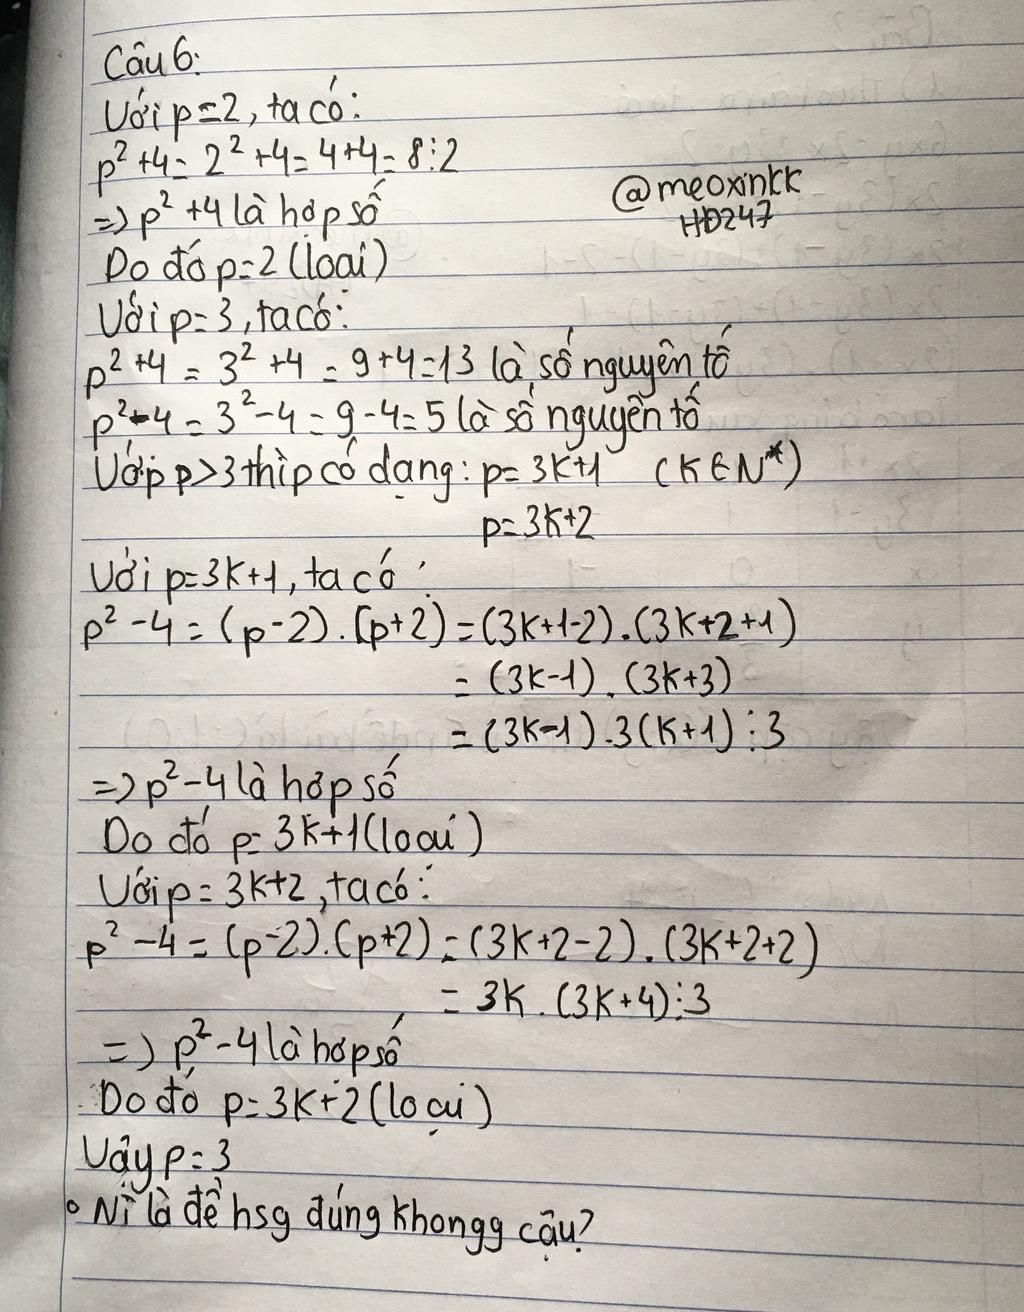 Câu 6:
Với p=2, ta có:
p² +4= 2² +4= 4+4= 8⋮2
=> p² +4 là hợp số
@meoxinkk
HD247
Do đó p=2 (loại)
Với p=3, ta có:
p² +4 = 3² +4 = 9+4=13 là số nguyên tố
p²-4 = 3²-4 = 9-4=5 là số nguyên tố
Vớip p>3 thì p có dạng: p= 3K+1 (K∈N*)
p=3K+2
Với p=3K+1, ta có :
p² -4 = (p-2).(p+2) = (3K+1-2).(3K+2+1)
= (3K-1).(3K+3)
= (3K-1).3(K+1)⋮3
=> p²-4 là hợp số
Do đó p= 3K+1 (loại)
Với p= 3K+2, ta có:
p² -4 = (p-2).(p+2) = (3K+2-2).(3K+2+2)
= 3K.(3K+4)⋮3
=> p²-4 là hợp số
Do đó p=3K+2 (loại)
Vậy p=3
∘ Nì là đề hsg đúng khongg cậu?